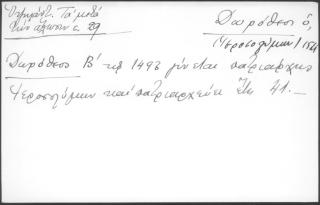 Τὰ μετὰ
τὴν ἅλωσιν σ. 29
Δωρόθεος ὁ,
Ἱεροσολύμων / 1534
Δωρόθεος Β΄ τῷ 1493 γίνεται πατριάρχης
Ἱεροσολύμων καὶ πατριαρχεύει ἔτη 41.—